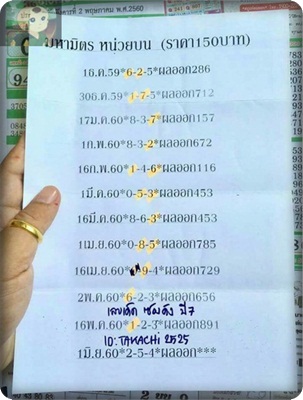 วันที่ 2 พฤษภาคม พ.ศ.2560
มหามิตร หน่วยบน (ราคา150บาท)
16ธ.ค.59*6-2-5*ผลออก286
30ธ.ค.59*1-7-5*ผลออก712
17ม.ค.60*8-3-7*ผลออก157
1ก.พ.60*8-3-2*ผลออก672
16ก.พ.60*1-4-6*ผลออก116
1มี.ค.60*0-5-3*ผลออก453
16มี.ค.60*8-6-3*ผลออก453
1เม.ย.60*0-8-5*ผลออก785
16เม.ย.60*9-4*ผลออก729
2พ.ค.60*6-2-3*ผลออก656
เลขเด็ด ซองดัง ปี7
16พ.ค.60*1-2-3*ผลออก891
ID: TAKACHi 2525
1มิ.ย.60*2-5-4*ผลออก***